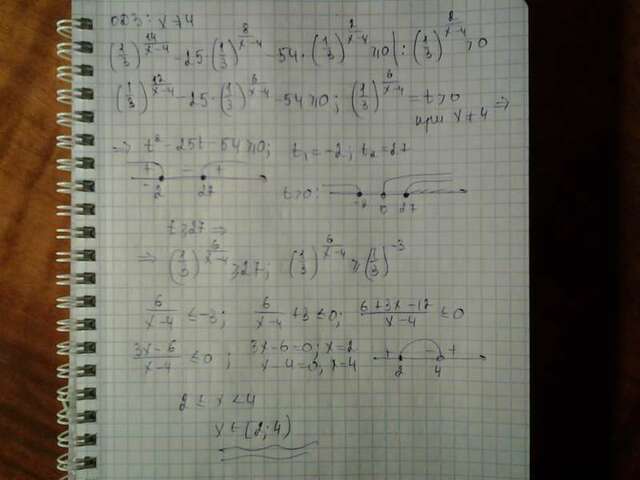 ОДЗ: x≠4
(1/3)^(14/(x-4)) - 25·(1/3)^(8/(x-4)) - 54·(1/3)^(2/(x-4)) ≥0 | : (1/3)^(2/(x-4)) >0
(1/3)^(12/(x-4)) - 25·(1/3)^(6/(x-4)) - 54 ≥0; (1/3)^(6/(x-4)) = t>0
при x≠4 ⇒
⇒ t² - 25t - 54 ≥0; t₁ = -2; t₂ = 27
+ - +
-2 27 t>0: -2 0 27
t ≥ 27 ⇒
⇒ (1/3)^(6/(x-4)) ≥ 27; (1/3)^(6/(x-4)) ≥ (1/3)^(-3)
6/(x-4) ≤ -3; 6/(x-4) + 3 ≤ 0; (6+3x-12)/(x-4) ≤ 0
(3x-6)/(x-4) ≤ 0; 3x-6=0; x=2
x-4=0; x=4
+ - +
2 4
2 ≤ x < 4
x ∈ [2; 4)